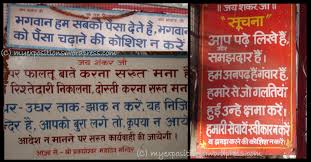 भगवान हम सबको पैसा देते हैं, भगवान
को पैसा चढ़ाने की कोशिश न करें
जय शंकर जी
पर फालतू बातें करना सख्त मना
रिश्तेदारी निकालना, दोस्ती करना सख्त मना
धर-उधर ताक-झाक न करें, यह निजि
न्दिर है, आपको बुरा लगे तो, कृपया न आये
आदेश न मानने पर सख्त कार्यवाही की जायेगी।
जय शंकर जी
सूचना
आप पढ़े लिखे हैं,
और समझदार हैं।
हम अनपढ़ हैं गंवार हैं,
हमारे से जो गलतियां
हुई उन्हे क्षमा करें।
हमारी सेवायें स्वीकार न करें
(c) myexpositions.wordpress.com
(c) myexpositions.wordpress.com